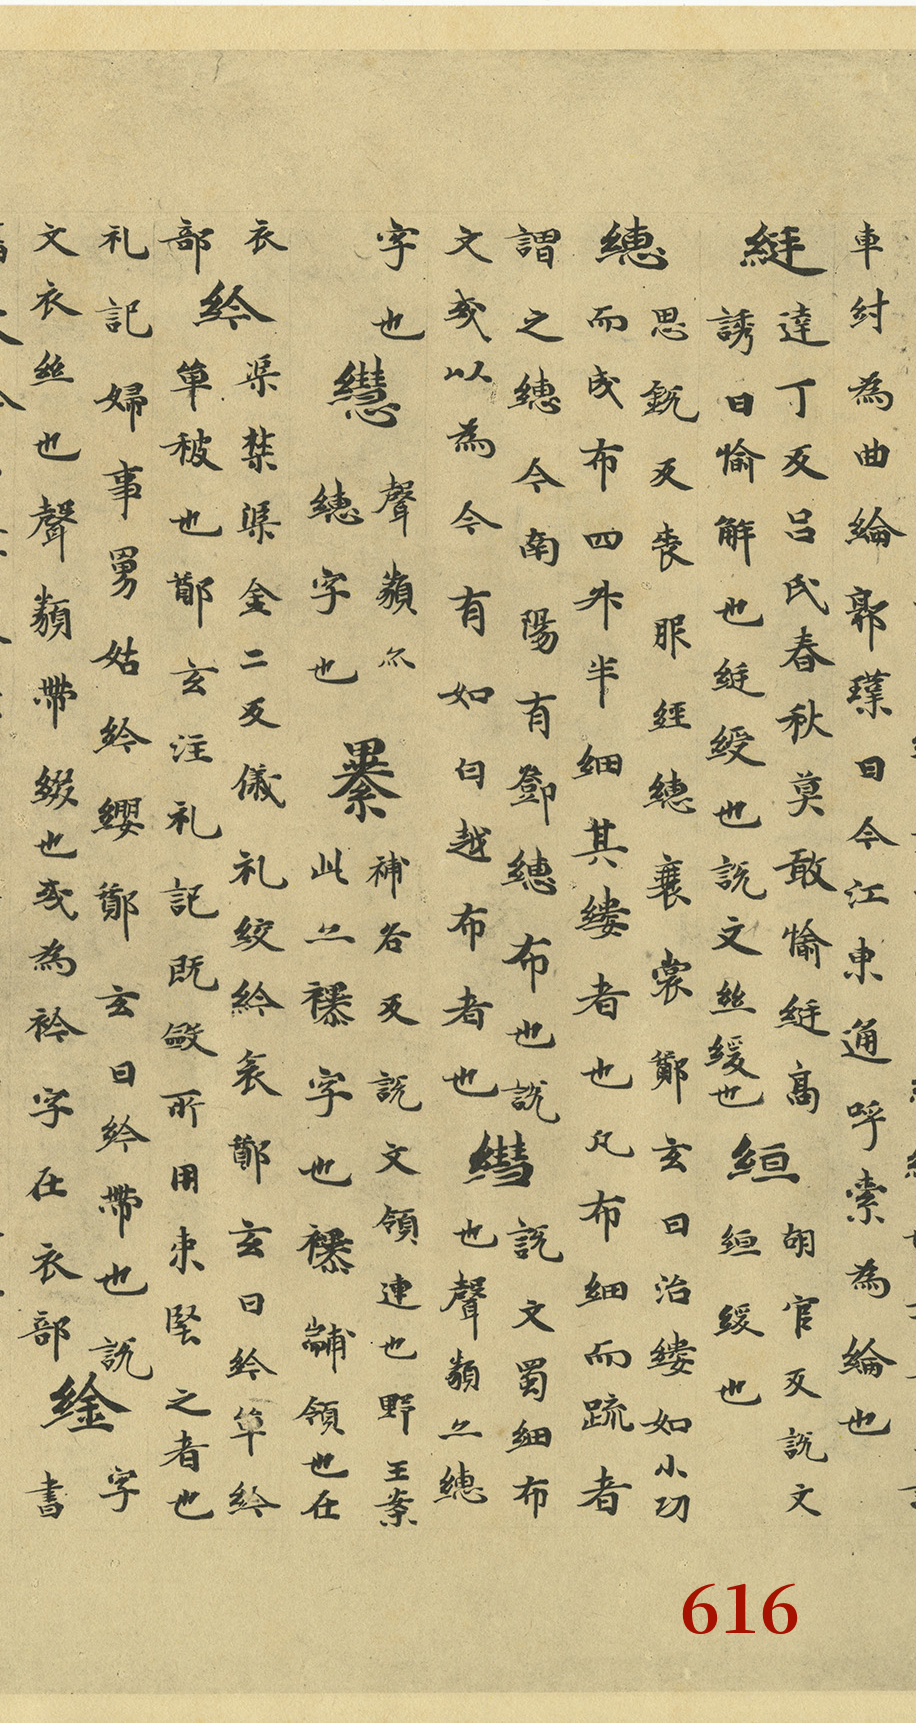 車紂為曲綸郭璞曰今江東通呼索為綸也
綎達丁反呂氏春秋莫敢愉綎高
誘曰愉解也綎綬也說文絲緩也
絙胡官反說文
絙緩也
繐思銳反喪服經繐衰裳鄭玄曰治縷如小功
而成布四升半細其縷者也凡布細而疏者
謂之繐今南陽有鄧繐布也說
文或以為今有如白越布者也
說文蜀細布
也聲類亦繐
字也
聲類亦
繐字也
補各反說文領連也野王案
此亦襮字也襮黼領也在
衣
部
紟渠禁渠金二反儀礼絞紟衾鄭玄曰紟單紟
單被也鄭玄注礼記既斂所用束堅之者也
礼記婦事舅姑紟纓鄭玄曰紟帶也說
文衣絲也聲類帶綴也或為衿字在衣部
䋮字
書
616